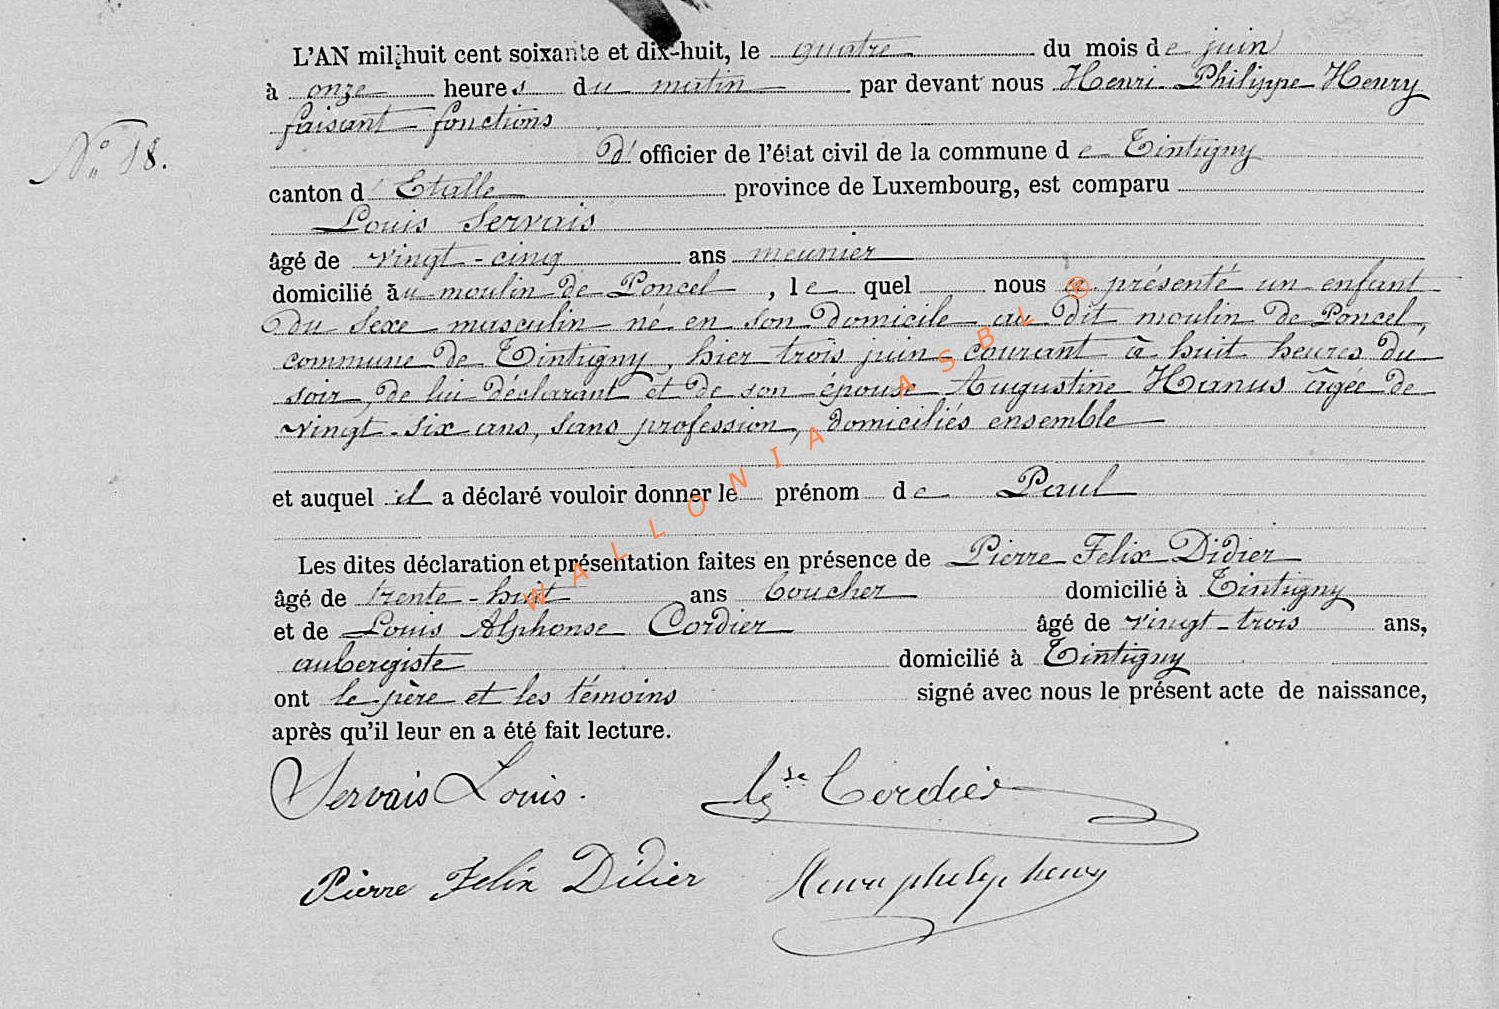 L'AN mil huit cent soixante et dix-huit, le quatre du mois de juin
à onze heures du matin par devant nous Henri Philippe Henry
faisant fonctions
N° 18.
d'officier de l'état civil de la commune de Tintigny
canton d'Etalle province de Luxembourg, est comparu
Louis Servais
âgé de vingt-cinq ans meunier
domicilié au moulin de Poncel, lequel nous a présenté un enfant
du sexe masculin né en son domicile au dit moulin de Poncel,
commune de Tintigny, hier trois juin courant à huit heures du
soir, de lui déclarant et de son épouse Augustine Hanus âgée de
vingt-six ans, sans profession, domiciliés ensemble
et auquel il a déclaré vouloir donner le prénom de Paul
Les dites déclaration et présentation faites en présence de Pierre Felix Didier
âgé de trente-huit ans boucher domicilié à Tintigny
et de Louis Alphonse Cordier âgé de vingt-trois ans,
aubergiste domicilié à Tintigny
ont le père et les témoins signé avec nous le présent acte de naissance,
après qu'il leur en a été fait lecture.
Servais Louis. Cordier
Pierre Felix Didier Henri philip henry
WALLONIA ASBL ®